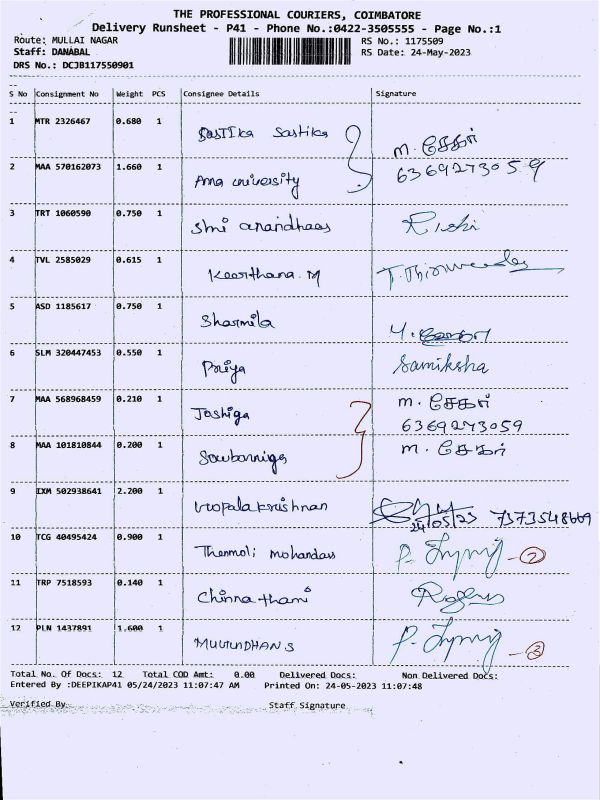 THE PROFESSIONAL COURIERS, COIMBATORE
Delivery Runsheet - P41 - Phone No.:0422-3505555 - Page No.:1
Route: MULLAI NAGAR RS No.: 1175509
Staff: DANABAL RS Date: 24-May-2023
DRS No.: DCJB117550901
S No Consignment No Weight PCS Consignee Details Signature
1 MTR 2326467 0.680 1 Sastika Sastika m. சேகர்
2 MAA 570162073 1.660 1 Anna university 6369273059
3 TRT 1060590 0.750 1 Shri anandhaas Rishi
4 TVL 2585029 0.615 1 Keerthana. M
5 ASD 1185617 0.750 1 Sharmila
6 SLM 320447453 0.550 1 Priya Samiksha
7 MAA 568968459 0.210 1 Joshiga m. சேகர்
6369273059
8 MAA 101810844 0.200 1 Sowbarniga m. சேகர்
9 IXM 502938641 2.200 1 Gopalakrishnan 24/05/23 7373548669
10 TCG 40495424 0.900 1 Thenmoli mohandass 2
11 TRP 7518593 0.140 1 Chinnathami
12 PLN 1437891 1.600 1 MUGUNDHAN S 3
Total No. Of Docs: 12 Total COD Amt: 0.00 Delivered Docs: Non Delivered Docs:
Entered By :DEEPIKAP41 05/24/2023 11:07:47 AM Printed On: 24-05-2023 11:07:48
Verified By Staff Signature